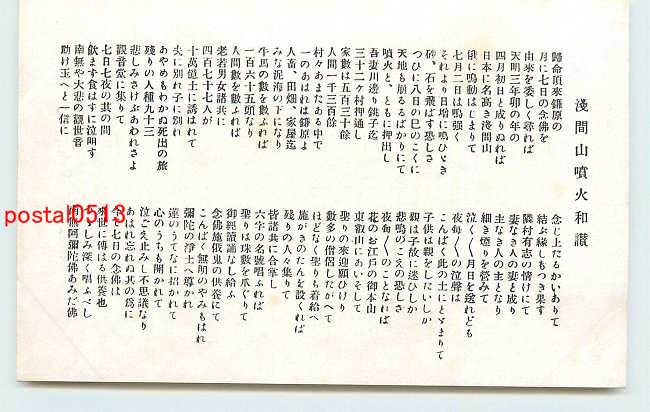 淺間山噴火和讃
歸命頂來鎌原の
月に七日の念佛を
由來を委しく尋れば
天明三年卯の年の
四月初日と成りぬれば
日本に名高き淺間山
俄に鳴動はじまりて
七月二日は鳴強く
それより日增に鳴ひゞき
砂、石を飛ばす恐しさ
つひに八日の巳のこくに
天地も崩るるばかりにて
噴火と、ともに押出し
吾妻川邊り銚子迄
三十二ヶ村押通し
家數は五百三十餘
人間一千三百餘
村々あまたある中で
一のあはれは鎌原よ
人畜、田畑、家屋迄
みな泥海の下になり
牛馬の數を數ふれば
一百六十五頭なり
人間數を數ふれば
老若男女諸共に
四百七十七人が
十萬億土に誘はれて
夫に別れ子に別れ
あやめもわかぬ死出の旅
殘りの人種九十三
悲しみさけぶあわれさよ
觀音堂に集りて
七日七夜の其の間
飮まず食はずに泣明す
南無や大悲の觀世音
助け玉へと一信に
念じ上たるかいありて
結ぶ緣しもつき果す
隣村有志の情けにて
妻なき人の妻と成り
主なき人の主となり
細き煙りを營みて
泣く〳〵月日を送れども
夜每〳〵の泣聲は
こんぱく此の土にとゞまりて
子供は親をしたいしか
親は子故に迷ひしか
悲鳴のこえの恐しさ
夜每〳〵のことなれば
花のお江戸の御本山
東叡山にあいそして
聖りの來迎願ひけり
數多の僧侶したがへて
ほどなく聖りも着給へ
施がきのだんを設くれば
殘りの人々集りて
皆諸共に合掌し
六字の名號唱ふれば
聖りは珠數を爪ぐりて
御經讀誦なし給ふ
念佛施餓鬼の供養にて
こんぱく無明のやみもはれ
彌陀の淨土へ導かれ
蓮のうてなに招かれて
心のうちも開かれて
泣ごえ止みし不思議なり
あはれ忘れぬ其の爲に
今ぞ七日の念佛は
末世に傳はる供養也
しみ深く唱ふべし
無阿彌陀佛あみだ佛
postal0513